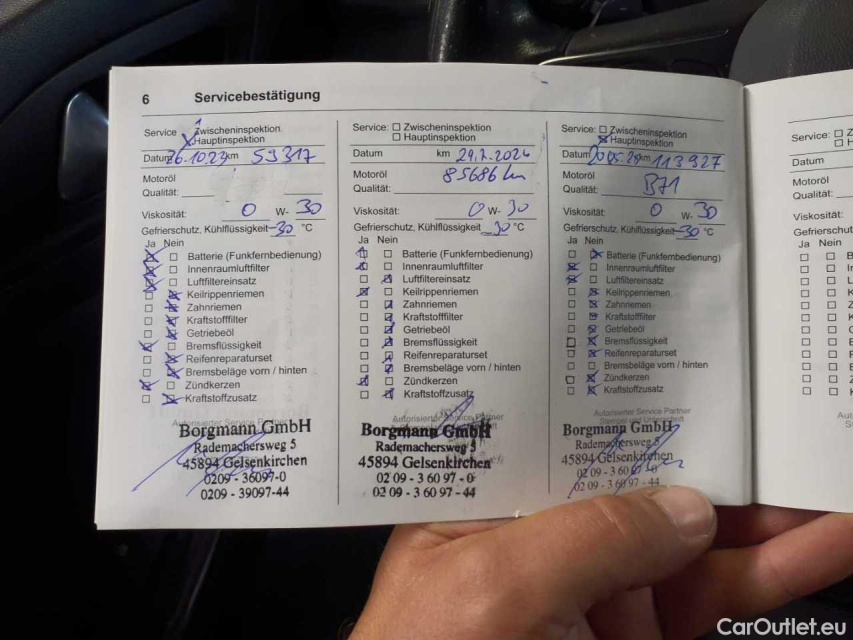 6 Servicebestätigung
Service Zwischeninspektion
Hauptinspektion
Datum 26.10.23 km 53317
Motoröl
Qualität:
Viskosität: 0 W- 30
Gefrierschutz, Kühlflüssigkeit -30 °C
Ja Nein
Batterie (Funkfernbedienung)
Innenraumluftfilter
Luftfiltereinsatz
Keilrippenriemen
Zahnriemen
Kraftstofffilter
Getriebeöl
Bremsflüssigkeit
Reifenreparaturset
Bremsbeläge vorn / hinten
Zündkerzen
Kraftstoffzusatz
Autorisierter Service Partner
Borgmann GmbH
Rademachersweg 5
45894 Gelsenkirchen
0209 - 36097-0
0209 - 39097-44
Service: Zwischeninspektion
Hauptinspektion
Datum km 29.7.2024
Motoröl 85686 km
Qualität:
Viskosität: 0 W- 30
Gefrierschutz, Kühlflüssigkeit -30 °C
Ja Nein
Batterie (Funkfernbedienung)
Innenraumluftfilter
Luftfiltereinsatz
Keilrippenriemen
Zahnriemen
Kraftstofffilter
Getriebeöl
Bremsflüssigkeit
Reifenreparaturset
Bremsbeläge vorn / hinten
Zündkerzen
Kraftstoffzusatz
Autorisierter Service Partner
Borgmann GmbH
Rademachersweg 5
45894 Gelsenkirchen
02 09 - 3 60 97 - 0
02 09 - 3 60 97 - 44
Service: Zwischeninspektion
Hauptinspektion
Datum km 113927
Motoröl
Qualität: B71
Viskosität: 0 W- 30
Gefrierschutz, Kühlflüssigkeit -30 °C
Ja Nein
Batterie (Funkfernbedienung)
Innenraumluftfilter
Luftfiltereinsatz
Keilrippenriemen
Zahnriemen
Kraftstofffilter
Getriebeöl
Bremsflüssigkeit
Reifenreparaturset
Bremsbeläge vorn / hinten
Zündkerzen
Kraftstoffzusatz
Autorisierter Service Partner
Borgmann GmbH
Rademachersweg 5
45894 Gelsenkirchen
02 09 - 3 60 97 - 0
02 09 - 3 60 97 - 44
Service:
Datum
Motoröl
Qualität:
Viskosität:
Ja Nein
CarOutlet.eu